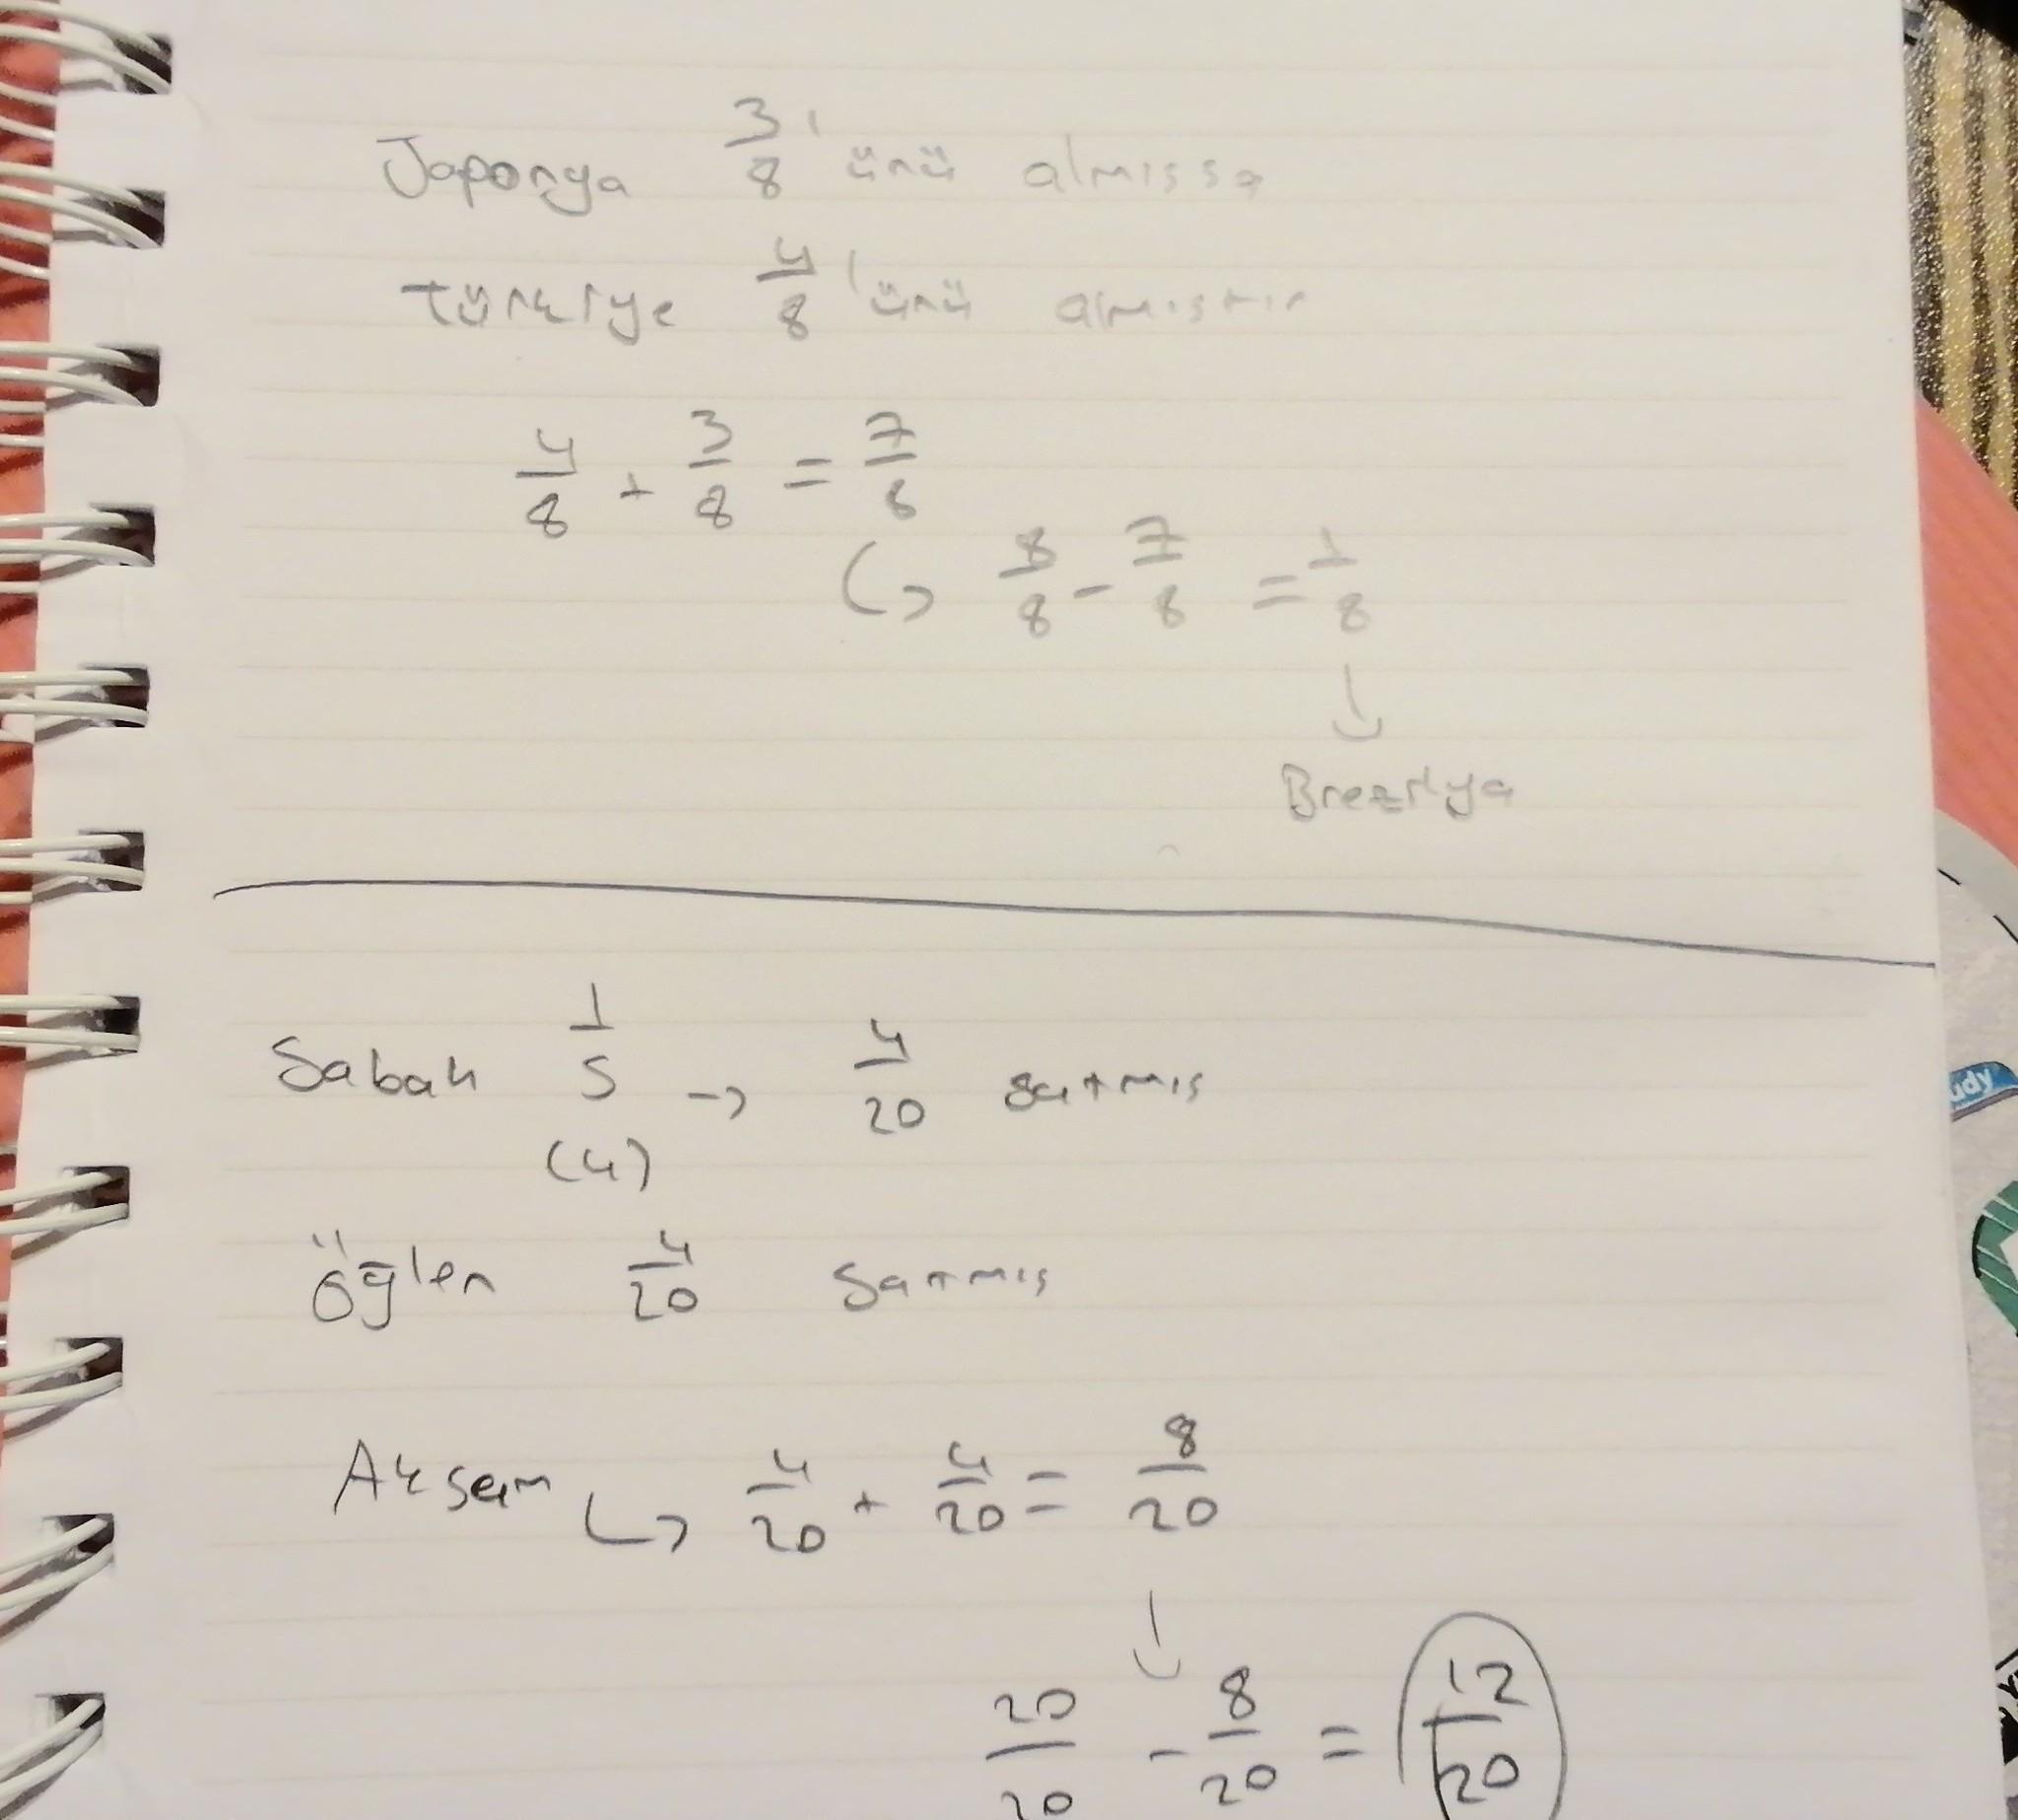 Japonya 3/8'ünü almıssa
türkiye 4/8'ünü almıstır
4/8 + 3/8 = 7/8
↳ 8/8 - 7/8 = 1/8
↓
Brezilya
Sabah 1/5 → 4/20 satmıs
(4)
öğlen 4/20 Satmış
Aksam ↳ 4/20 + 4/20 = 8/20
↓
20/20 - 8/20 = 12/20
udy